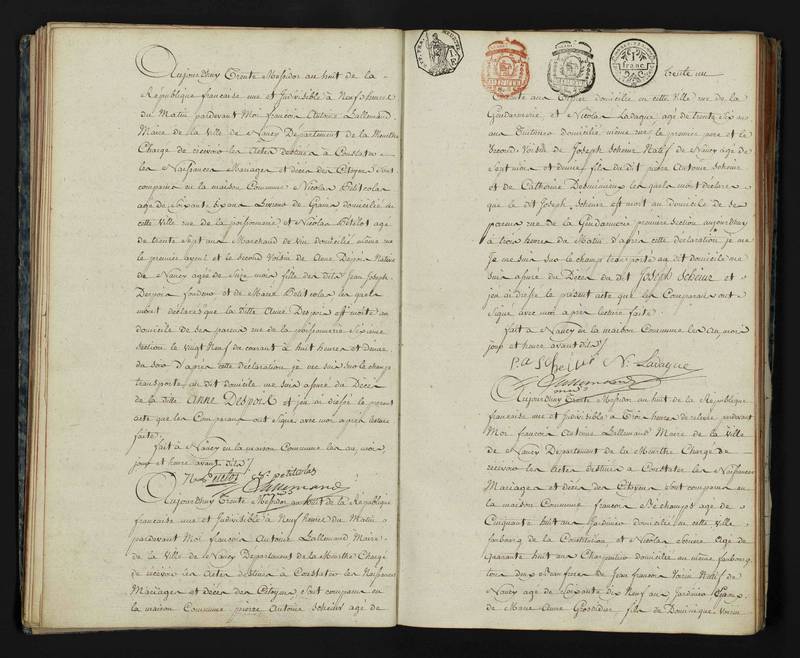 Aujourdhuy Trente Messidor an huit de la
République francaise une et Indivisible à Neuf heures
du Matin pardevant Moi francois Antoine Lallemand
Maire de la Ville de Nancy Département de la Meurthe
Chargé de recevoir les Actes destinés à Constater
les Naissances Mariages et décès des Citoyens sont
comparus en la maison Commune Nicolas Petitcolas
agé de soixante six ans de Grains domicilié en
cette Ville rue de la poissonnerie et Nicolas Petitot agé
de trente sept ans Marchand de Vin domicilié même rue
le premier ayeul et le second Voisin de Anne Despois Native
de Nancy agée de Seize mois fille des dits Jean Joseph
Despois fondeur et de Marie Petitcolas les quels
mont déclaré que la ditte Anne Despois est morte au
domicile de ses parens rue de la poissonnerie sixieme
section le vingt Neuf du courant à huit heures et demie
du soir d'après cette déclaration je me suis sur le champ
transporté au dit domicile me suis assuré du Décès
de la ditte ANNE DESPOIS et j'en ai dressé le présent
acte que les Comparans ont Signé avec moi après lecture
faite
fait à Nancy en la maison Commune les an, mois,
jour et heure avant dits
Petitot N. petitcolas
Lallemand
Aujourdhuy Trente Messidor an huit de la République
francaise une et Indivisible à Neuf heures du Matin
pardevant Moi francois Antoine Lallemand Maire
de la Ville de Nancy Département de la Meurthe Chargé
de recevoir les Actes destinés à Constater les Naissances
Mariages et décès des Citoyens sont comparus en
la maison Commune pierre Antoine Scheür agé de
1 franc
trente un
Trente ans domicilié en cette Ville rue de la
Gendarmerie et Nicolas Ladague agé de trente six ans
domicilié même rue le premier pere et le
Second Voisin de Joseph Scheür Natif de Nancy agé de
Sept mois et demie fils du dit pierre Antoine Scheür
et de Catherine les quels mont déclaré
que le dit Joseph Scheür est mort au domicile de ses
parens rue de la Gendarmerie première section aujourdhuy
à trois heures du Matin d'après cette déclaration je me
Je me suis sur le champ transporté au dit domicile me
suis assuré du Décès du dit JOSEPH Scheür et
j'en ai dressé le présent acte que les Comparans ont
Signé avec moi après lecture faite
fait à Nancy en la maison Commune les an, mois
jour et heure avant dits
p. a Scheür N. Ladague
Lallemand
Aujourdhuy Trente Messidor an huit de la République
francaise une et Indivisible à Trois heures de relevée pardevant
Moi francois Antoine Lallemand Maire de la Ville
de Nancy Département de la Meurthe Chargé de
recevoir les Actes destinés à Constater les Naissances
Mariages et décès des Citoyens sont comparus en
la maison Commune francois Béchampt agé de
Cinquante huit ans Jardinier domicilié en cette Ville
faubourg de la Constitution et Nicolas agé de
Quarante huit ans Charpentier domicilié au même faubourg
tous deux Beaufrere de Jean francois Voirin Natif de
Nancy agé de soixante dix Neuf ans Jardinier Epoux
de Marie Anne fils de Dominique Voirin